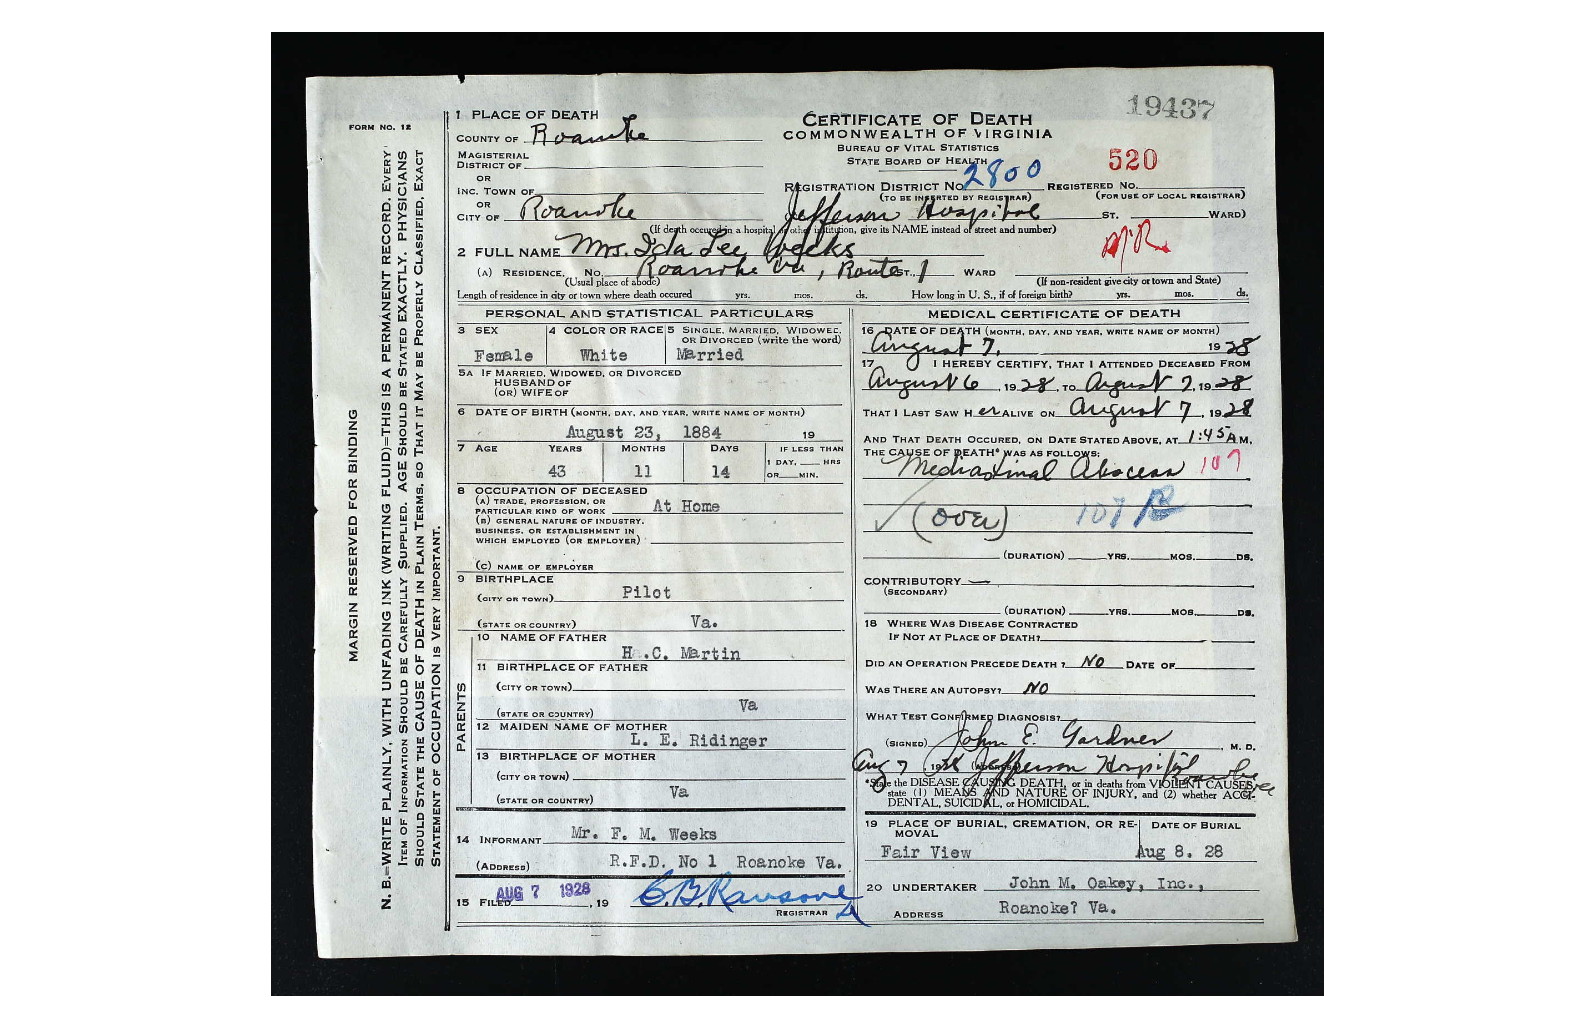 19437
FORM NO. 12
MARGIN RESERVED FOR BINDING
N. B.—WRITE PLAINLY, WITH UNFADING INK (WRITING FLUID)—THIS IS A PERMANENT RECORD. EVERY
ITEM OF INFORMATION SHOULD BE CAREFULLY SUPPLIED. AGE SHOULD BE STATED EXACTLY. PHYSICIANS
SHOULD STATE THE CAUSE OF DEATH IN PLAIN TERMS, SO THAT IT MAY BE PROPERLY CLASSIFIED. EXACT
STATEMENT OF OCCUPATION IS VERY IMPORTANT.
1 PLACE OF DEATH
COUNTY OF Roanoke
MAGISTERIAL
DISTRICT OF
OR
INC. TOWN OF
OR
CITY OF Roanoke
CERTIFICATE OF DEATH
COMMONWEALTH OF VIRGINIA
BUREAU OF VITAL STATISTICS
STATE BOARD OF HEALTH
520
REGISTRATION DISTRICT NO. 2800 REGISTERED NO.
(TO BE INSERTED BY REGISTRAR) (FOR USE OF LOCAL REGISTRAR)
Jefferson Hospital ST. WARD)
(If death occured in a hospital or other institution, give its NAME instead of street and number)
2 FULL NAME Mrs. Ida Lee Weeks
(A) RESIDENCE. No. Roanoke Va, Route ST., 1 WARD
(Usual place of abode) (If non-resident give city or town and State)
Length of residence in city or town where death occured yrs. mos. ds. How long in U. S., if of foreign birth? yrs. mos. ds.
PERSONAL AND STATISTICAL PARTICULARS
3 SEX 4 COLOR OR RACE 5 SINGLE, MARRIED, WIDOWED,
OR DIVORCED (write the word)
Female White Married
5A IF MARRIED, WIDOWED, OR DIVORCED
HUSBAND OF
(OR) WIFE OF
6 DATE OF BIRTH (MONTH, DAY, AND YEAR, WRITE NAME OF MONTH)
August 23, 1884 19
7 AGE YEARS MONTHS DAYS IF LESS THAN
1 DAY, HRS
43 11 14 OR MIN.
8 OCCUPATION OF DECEASED
(A) TRADE, PROFESSION, OR
PARTICULAR KIND OF WORK At Home
(B) GENERAL NATURE OF INDUSTRY,
BUSINESS, OR ESTABLISHMENT IN
WHICH EMPLOYED (OR EMPLOYER)
(C) NAME OF EMPLOYER
9 BIRTHPLACE
(CITY OR TOWN) Pilot
(STATE OR COUNTRY) Va.
PARENTS
10 NAME OF FATHER
H .C. Martin
11 BIRTHPLACE OF FATHER
(CITY OR TOWN)
(STATE OR COUNTRY) Va
12 MAIDEN NAME OF MOTHER
L. E. Ridinger
13 BIRTHPLACE OF MOTHER
(CITY OR TOWN)
(STATE OR COUNTRY) Va
14 INFORMANT Mr. F. M. Weeks
(ADDRESS) R.F.D. No 1 Roanoke Va.
15 FILED AUG 7 1928, 19 C.B. Ransone
REGISTRAR
MEDICAL CERTIFICATE OF DEATH
16 DATE OF DEATH (MONTH, DAY, AND YEAR, WRITE NAME OF MONTH)
August 7, 1928
17 I HEREBY CERTIFY, THAT I ATTENDED DECEASED FROM
August 6, 1928, TO August 7, 1928,
THAT I LAST SAW H er ALIVE ON August 7, 1928
AND THAT DEATH OCCURED, ON DATE STATED ABOVE, AT 1:45 A M.
THE CAUSE OF DEATH* WAS AS FOLLOWS:
Mediastinal Abscess 107
(over) 107 B
(DURATION) YRS. MOS. DS.
CONTRIBUTORY —
(SECONDARY)
(DURATION) YRS. MOS. DS.
18 WHERE WAS DISEASE CONTRACTED
IF NOT AT PLACE OF DEATH?
DID AN OPERATION PRECEDE DEATH? No DATE OF
WAS THERE AN AUTOPSY? No
WHAT TEST CONFIRMED DIAGNOSIS?
(SIGNED) John E. Gardner, M. D.
Aug 7, 1928 (ADDRESS) Jefferson Hospital Roanoke
*State the DISEASE CAUSING DEATH, or in death from VIOLENT CAUSES,
state (1) MEANS AND NATURE OF INJURY, and (2) whether ACCI-
DENTAL, SUICIDAL, or HOMICIDAL.
19 PLACE OF BURIAL, CREMATION, OR RE-
MOVAL DATE OF BURIAL
Fair View Aug 8. 28
20 UNDERTAKER John M. Oakey, Inc.,
ADDRESS Roanoke? Va.